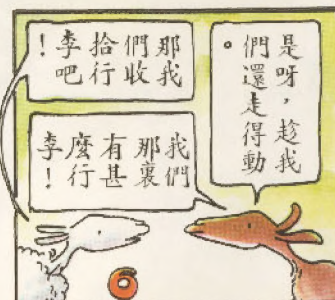 是呀，趁我
們還走得動
。
那我
們收
拾行
李吧
！
我們
那裏
有甚
麼行
李！
6